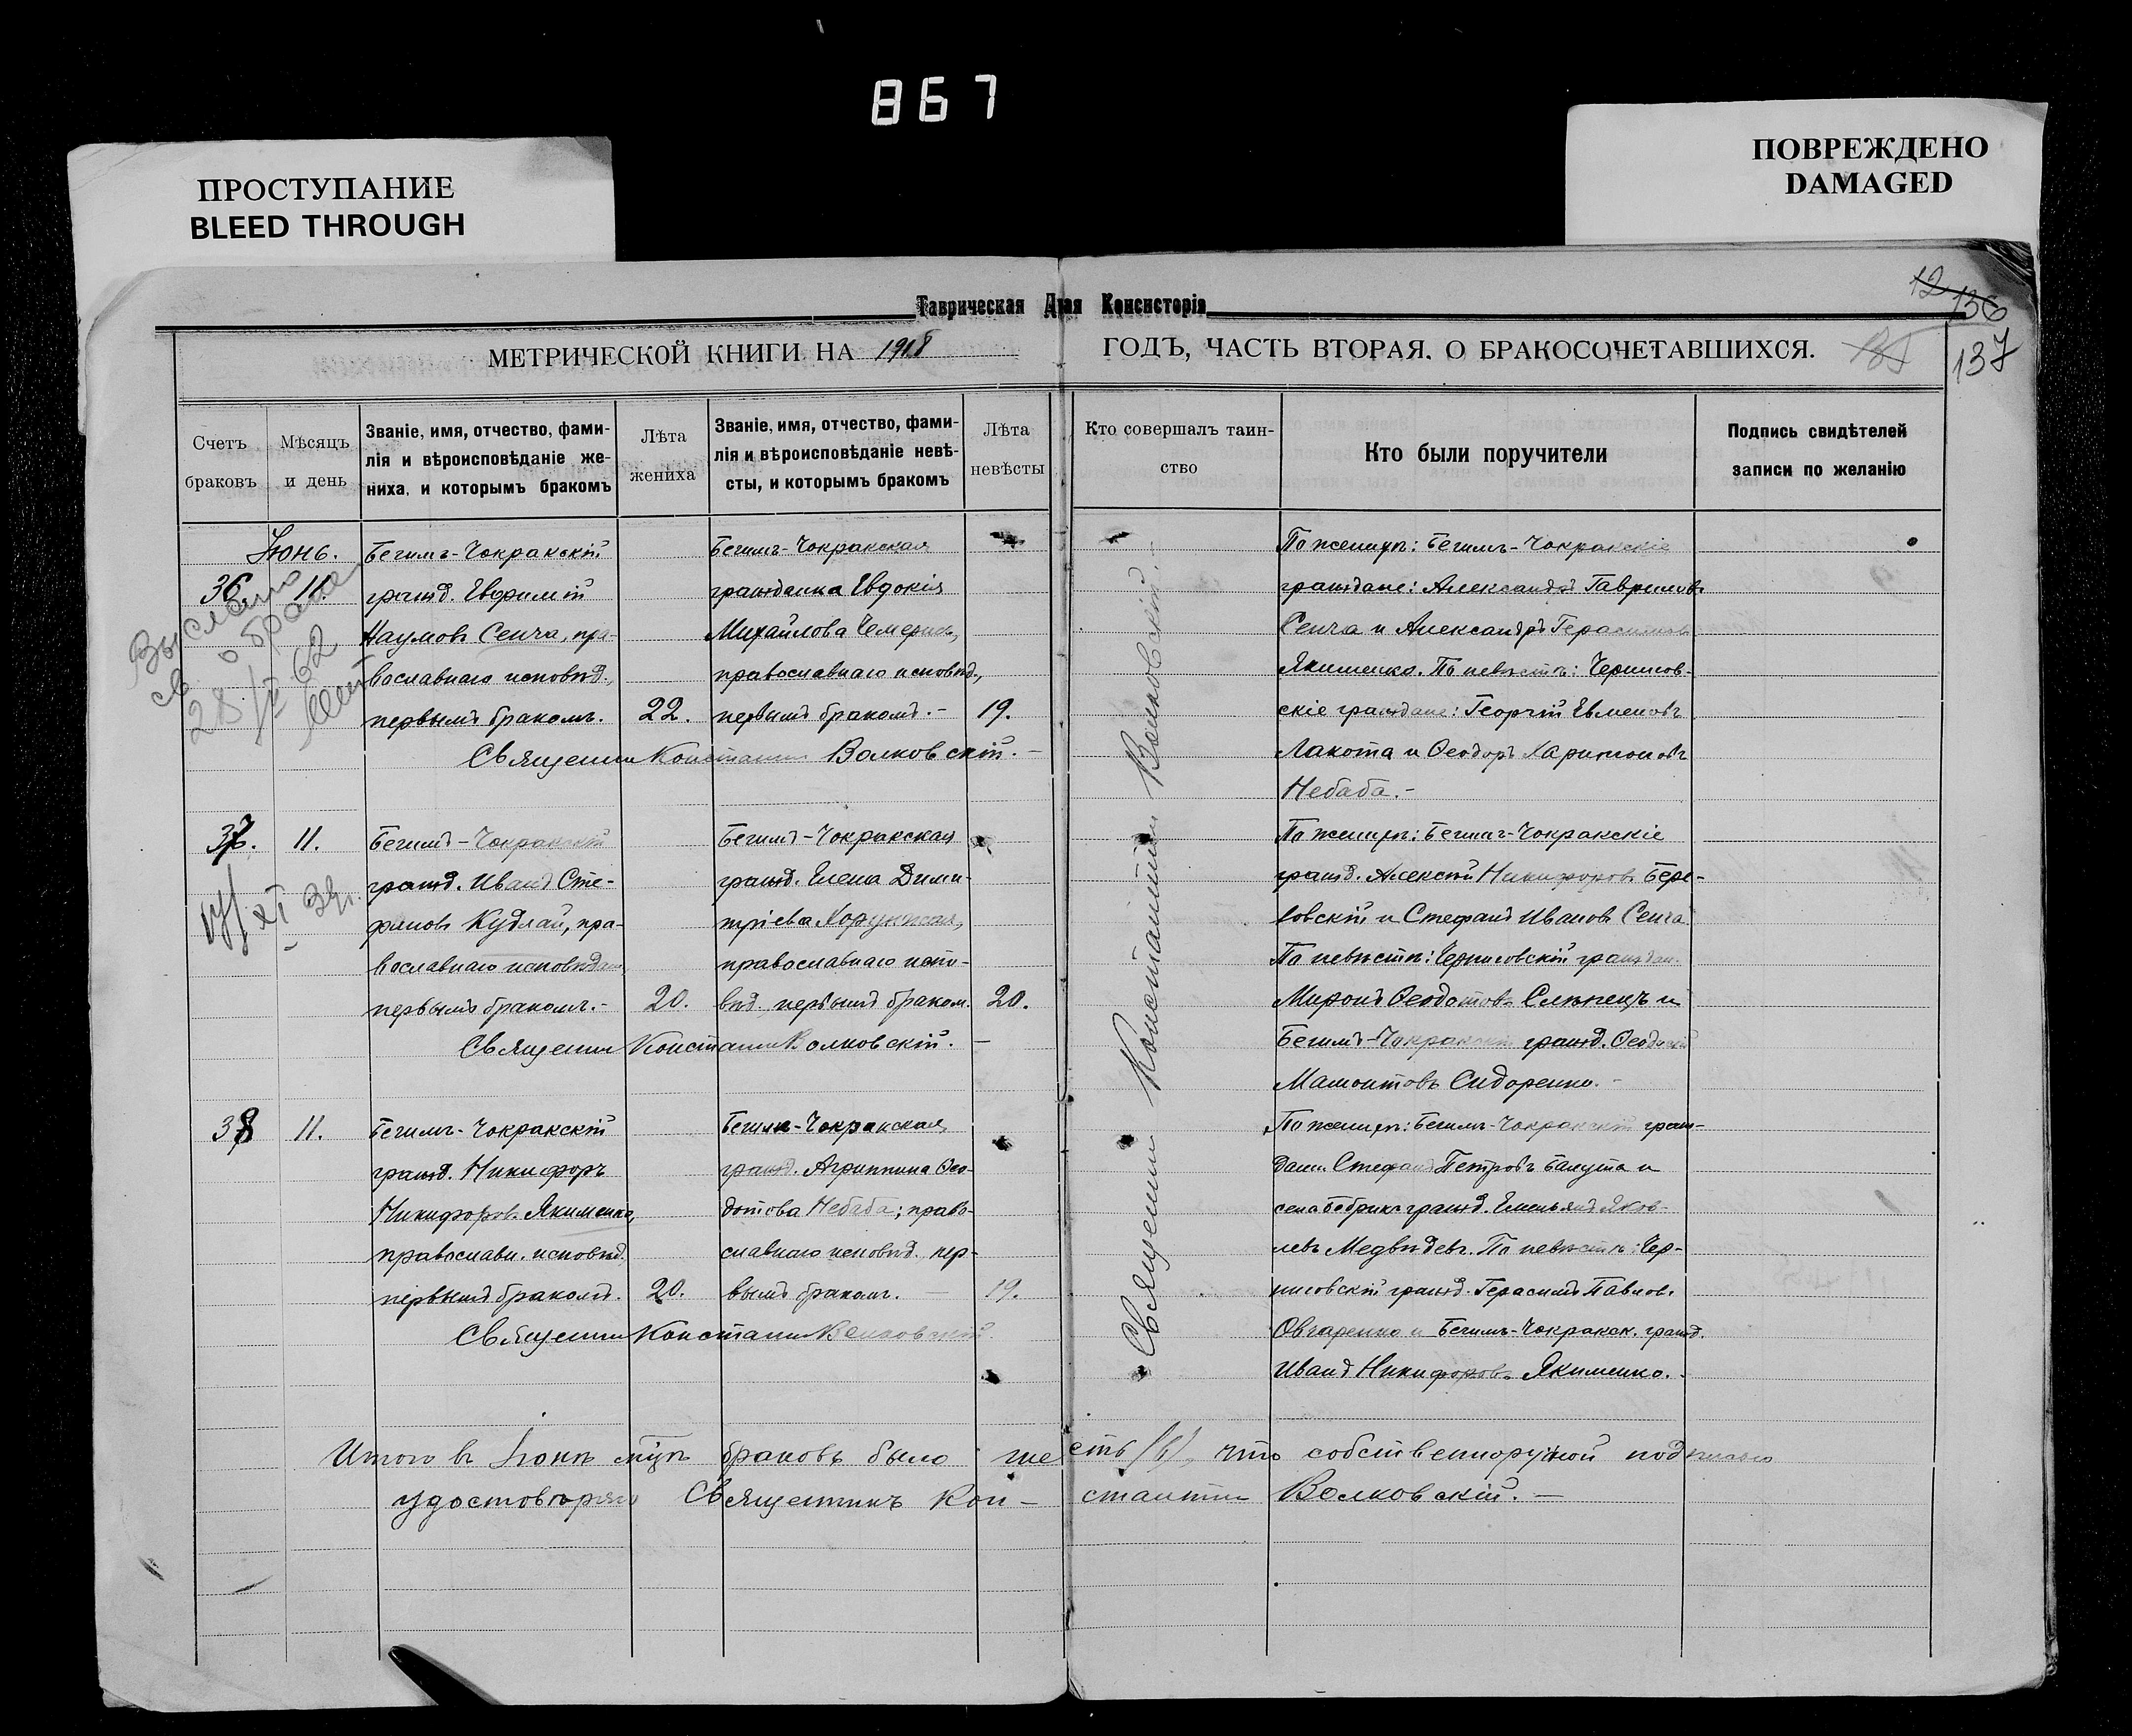 867
ПРОСТУПАНИЕ
BLEED THROUGH
ПОВРЕЖДЕНО
DAMAGED
Таврическая Дхая Консисторія
12
136
137
МЕТРИЧЕСКОЙ КНИГИ НА 1918 ГОДЪ, ЧАСТЬ ВТОРАЯ, О БРАКОСОЧЕТАВШИХСЯ.
Счетъ браковъ
Мѣсяцъ и день
Званіе, имя, отчество, фами-
лія и вѣроисповѣданіе же-
ниха, и которымъ бракомъ
Лѣта
жениха
Званіе, имя, отчество, фами-
лія и вѣроисповѣданіе невѣ-
сты, и которымъ бракомъ
Лѣта
невѣсты
Кто совершалъ таин-
ство
Кто были поручители
Подпись свидѣтелей
записи по желанію
Іюнь.
36. 11.
Бегимъ-Чокракскій
гражд. Евфимій
Наумовъ Сенча, пра-
вославнаго исповѣд.,
первымъ бракомъ.
22.
Бегимъ-Чокракская
гражданка Евдокія
Михайлова
православнаго исповѣд.,
первымъ бракомъ.-
19.
Священник Константин Волковскій.-
По женихѣ: Бегимъ-Чокракскіе
граждане: Александръ Гавриловъ
Сенча и Александръ Герасимовъ
Якименко. По невѣстѣ: Чернигов-
скіе граждане: Георгій Евменовъ
Лакота и Ѳеодоръ Харитоновъ
Небаба.-
Выслано
св. о браке
28/ 62
37. 11.
Бегимъ-Чокракскій
гражд. Иванъ Сте-
фановъ Кудлай, пра-
вославнаго исповѣдан.
первымъ бракомъ.-
20.
Бегимъ-Чокракская
гражд. Елена Дими-
тріева Хорунжая,
православнаго испо-
вѣд., первымъ браком.
20.
Священник Константин Волковскій.-
По женихѣ: Бегимъ-Чокракскіе
гражд. Алексѣй Никифоровъ Бере-
зовскій и Стефанъ Ивановъ Сенча
По невѣстѣ: Черниговскій граждан.
Миронъ Ѳеодотовъ Слѣпецъ и
Бегимъ-Чокракскій гражд. Ѳеодосій
Мамонтовъ Сидоренко.-
XI 39г.
38 11.
Бегимъ-Чокракскій
гражд. Никифоръ
Никифоровъ Якименко,
православн. исповѣд.
первымъ бракомъ.
20.
Бегим-Чокракская
гражд. Агриппина Ѳео-
дотова Небаба; право-
славнаго исповѣд. пер-
вымъ бракомъ. -
19.
Священник Константин Волковскій.
По женихѣ: Бегимъ-Чокракскій граж-
дан. Стефанъ Петровъ Балута и
села Бобрика гражд. Емельянъ Яков-
левъ Медвѣдевъ. По невѣстѣ: Чер-
ниговскій гражд. Герасимъ Павлов.
Овчаренко и Бегимъ-Чокракск. гражд.
Иванъ Никифоровъ Якименко.
Священник Константин Волковскій.-
Итого въ Іюнѣ м-цѣ браковъ было шесть /6/, что собственноручной подписью
удостовѣряю Священникъ Кон- стантин Волковскій. -